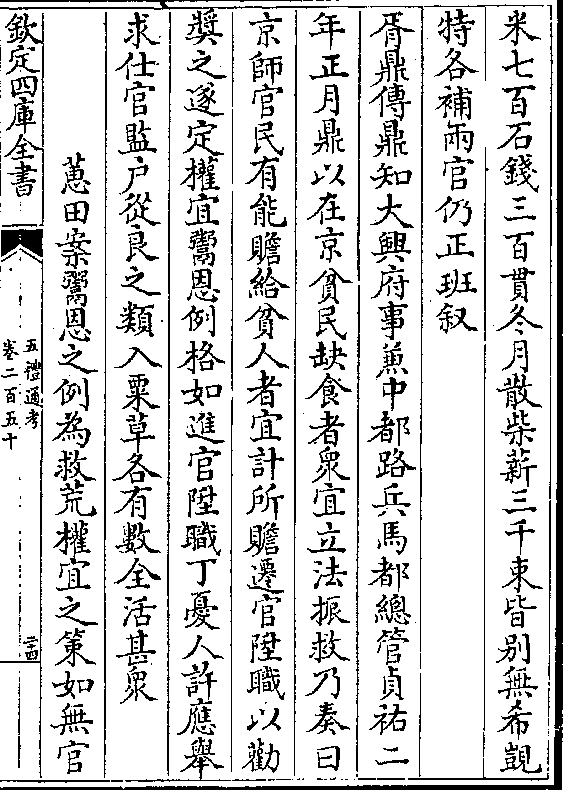 米七百石錢三百貫冬月散柴薪三千束皆别無希覬
特各補兩官仍正班叙
胥鼎傳鼎知大興府事兼中都路兵馬都總管貞祐二
年正月鼎以在京貧民缺食者衆宜立法振救乃奏曰
京師官民有能贍給貧人者宜計所贍遷官陞職以勸
奬之遂定權宜鬻恩例格如進官陞職丁憂人許應舉
求仕官監户從良之類入粟草各有數全活甚衆
蕙田案鬻恩之例為救荒權宜之策如無官
欽定四庫全書
五禮通考
卷二百五十
二十四